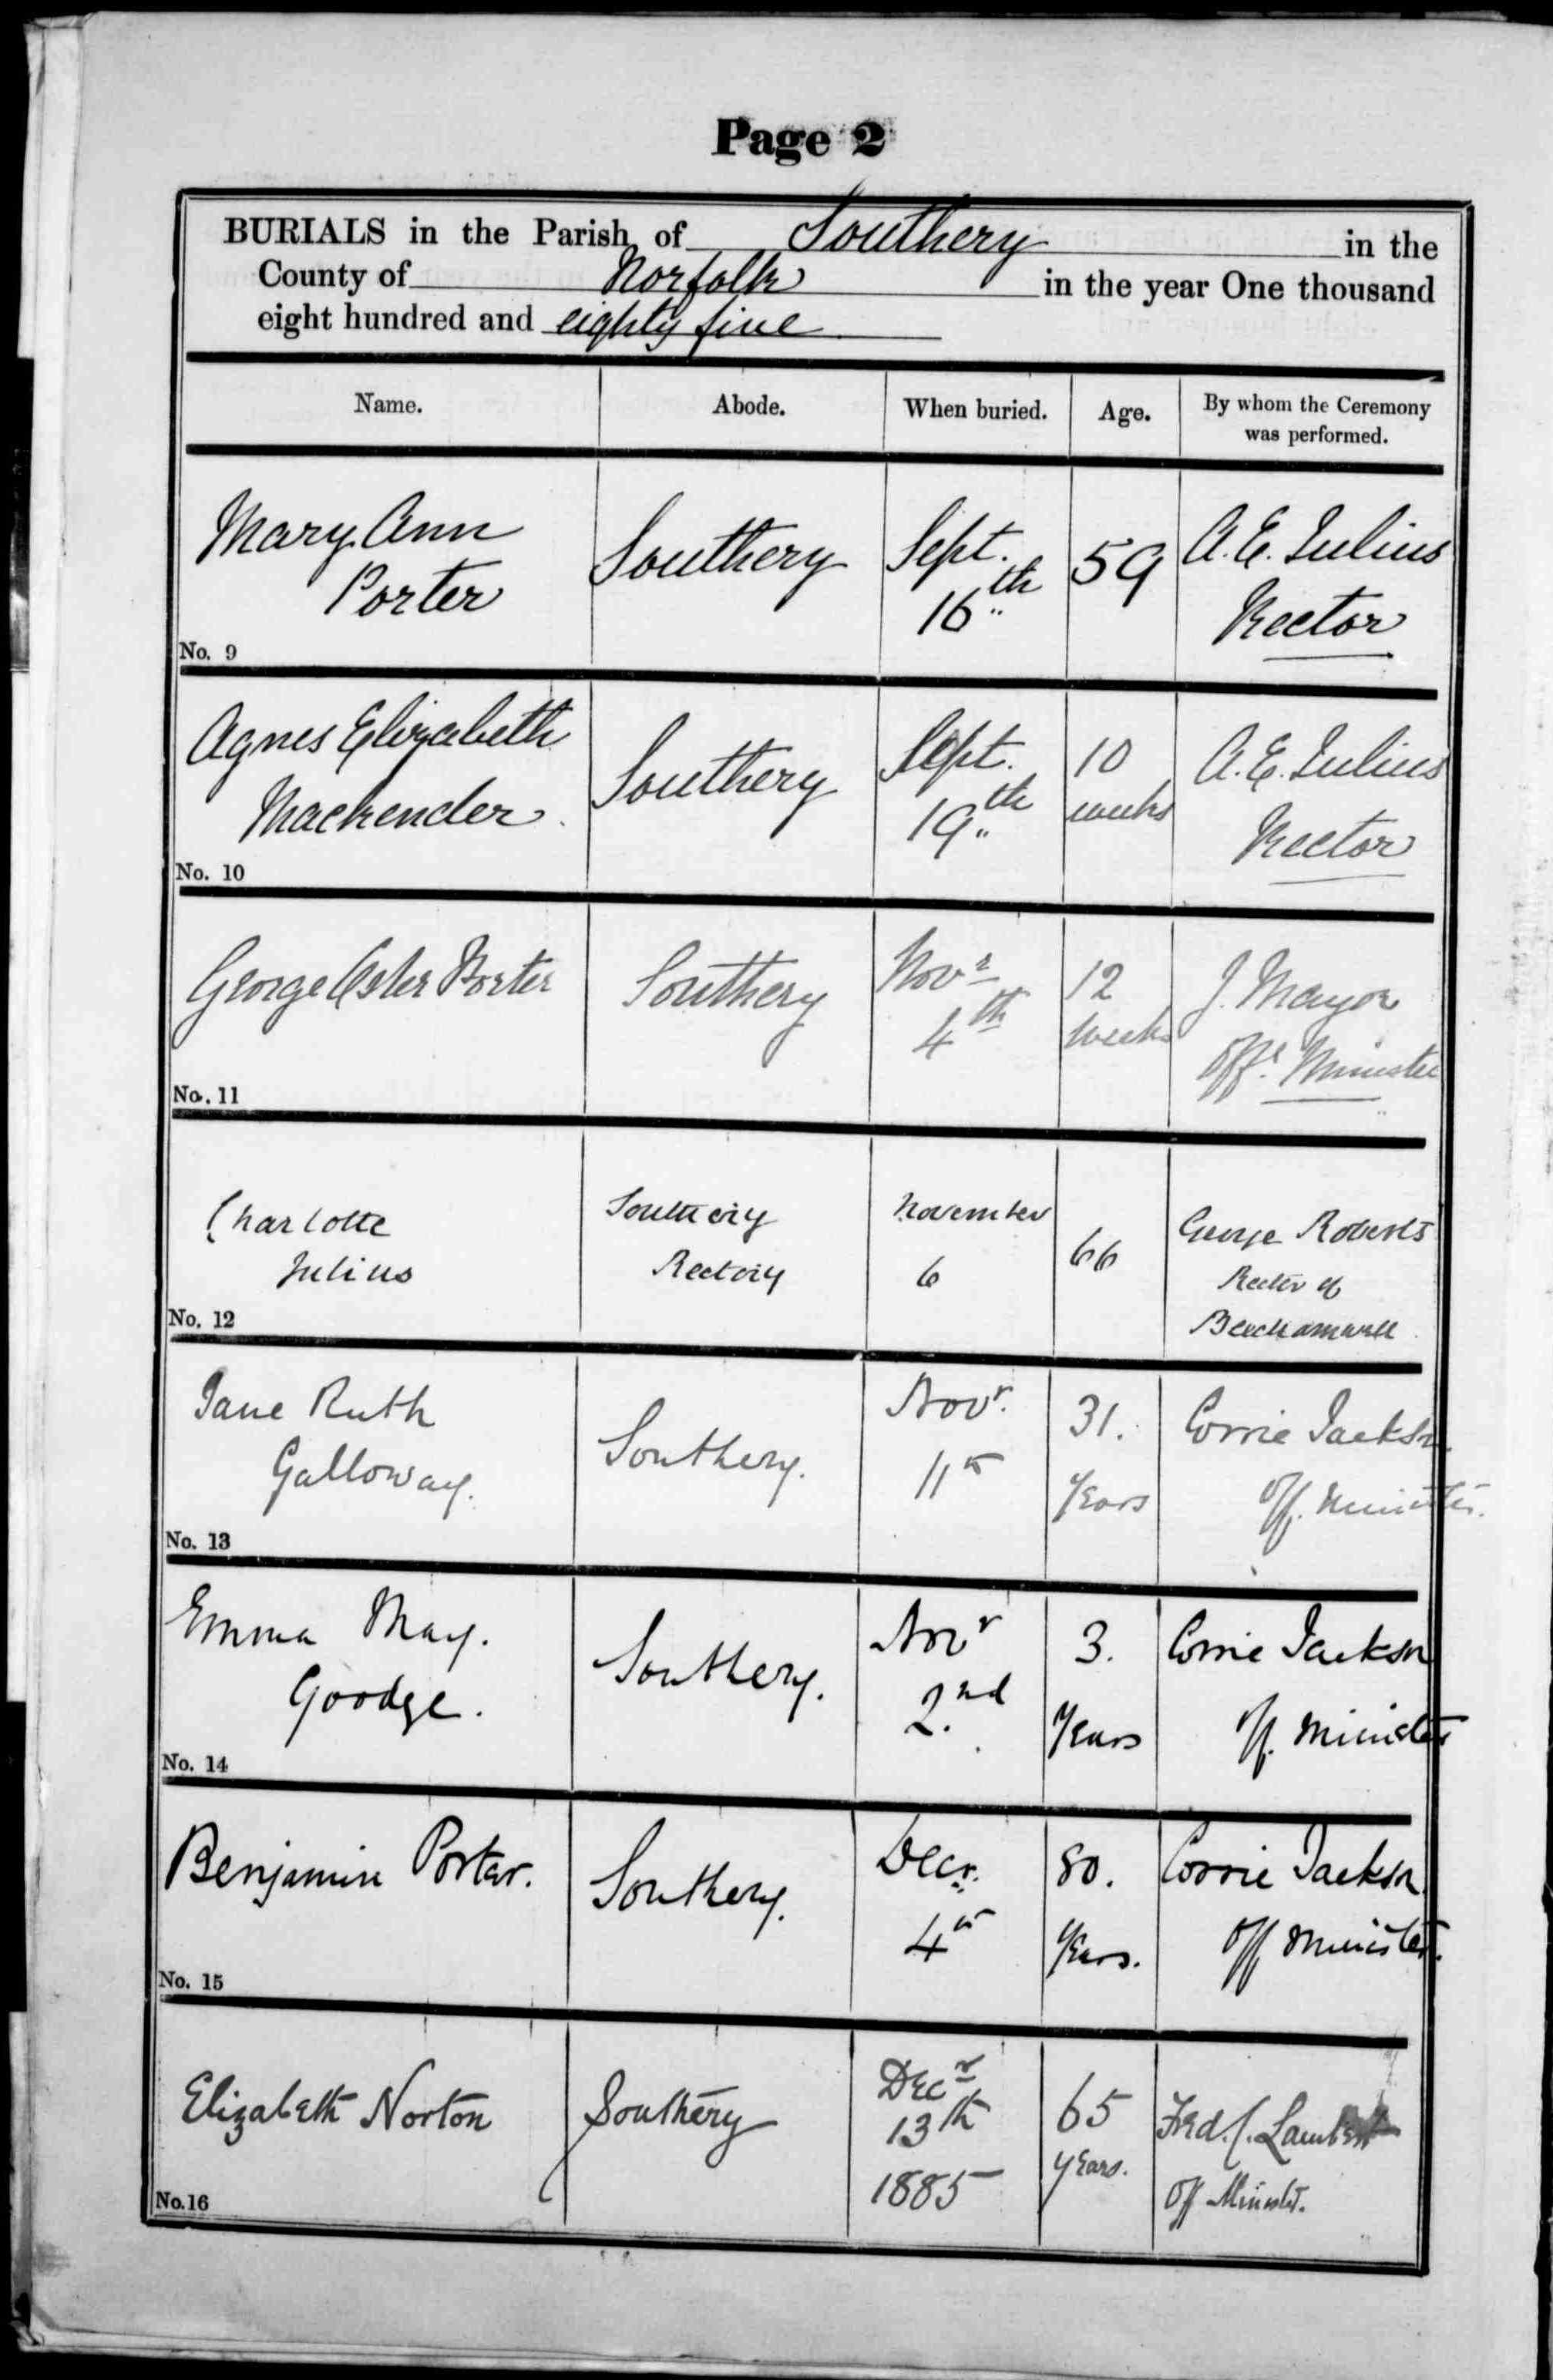 Page 2
BURIALS in the Parish of Southery in the
County of Norfolk in the year One thousand
eight hundred and eighty five
Name. Abode. When buried. Age. By whom the Ceremony
was performed.
Mary Ann Southery Sept. 59 A. E. Julius
Porter 16th Rector
No. 9
Agnes Elizabeth Southery Sept. 10 A. E. Julius
Mackender 19th weeks Rector
No. 10
George Porter Southery Novr 12 J. Mayor
4th weeks Offg. Minister
No. 11
Charlotte Southery November 66 George Roberts
Julius Rectory 6 Rector of
Beechamwell
No. 12
Jane Ruth Southery. Novr. 31. Corrie Jackson.
Galloway. 11th years Off. Minister.
No. 13
Emma May. Southery. Novr 3. Corrie Jackson
Goodge. 2.nd years Off. Minister
No. 14
Benjamin Porter. Southery. Decr. 80. Corrie Jackson
4th years. Off Minister.
No. 15
Elizabeth Norton Southery Decr 65 Fred. C. Lambert
13th years. Off Minister.
1885
No. 16